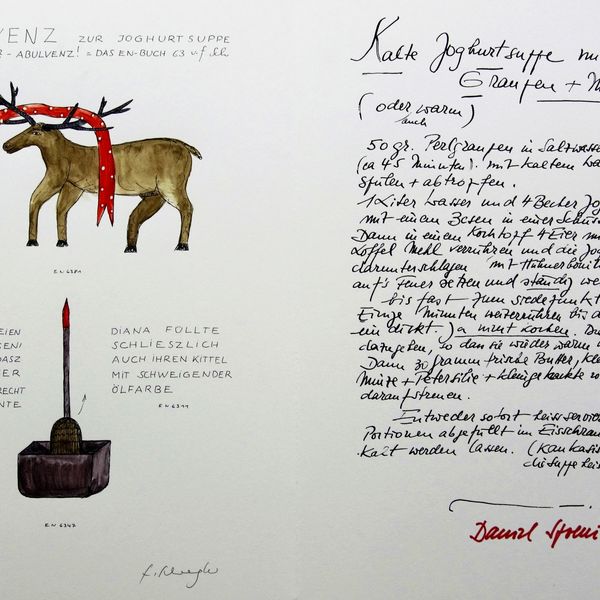 VENZ ZUR JOGHURTSUPPE
- ABULVENZ! = DAS EN-BUCH 63 u.f
EN 6381
EIEN
SEN!
DASZ
ER
RECHT
NTE
DIANA FÜLLTE
SCHLIESZLICH
AUCH IHREN KITTEL
MIT SCHWEIGENDER
ÖLFARBE
EN 6311
EN 6347
Kalte Joghurtsuppe mi
Graupen + M
(oder warm)
auch
50 gr. Perlgraupen in Salzwasse
(ca 45 Minuten). mit kaltem Wa
spülen + abtropfen.
1 Liter Wasser und 4 Becher Jog
mit einem Besen in einer Schüs
Dann in einem Kochtopf 4 Eier mi
Löffel Mehl verrühren und die Jog
darunterschlagen mit Hühnerbouil
auf's Feuer setzen und ständig we
bis fast zum siedepunkt
Einige Minuten weiterrühren bis d
eindickt.) a nicht kochen. Da
dazugeben, so dass sie wieder warm w
Dann 30 gramm frische Butter, kle
Minze + Petersilie + kleingehackte
daraufstreuen.
Entweder sofort heiss servie
Portionen abgefüllt im Eisschran
Kalt werden lassen. (Kaukasis
die Suppe heis
Daniel Spoerri